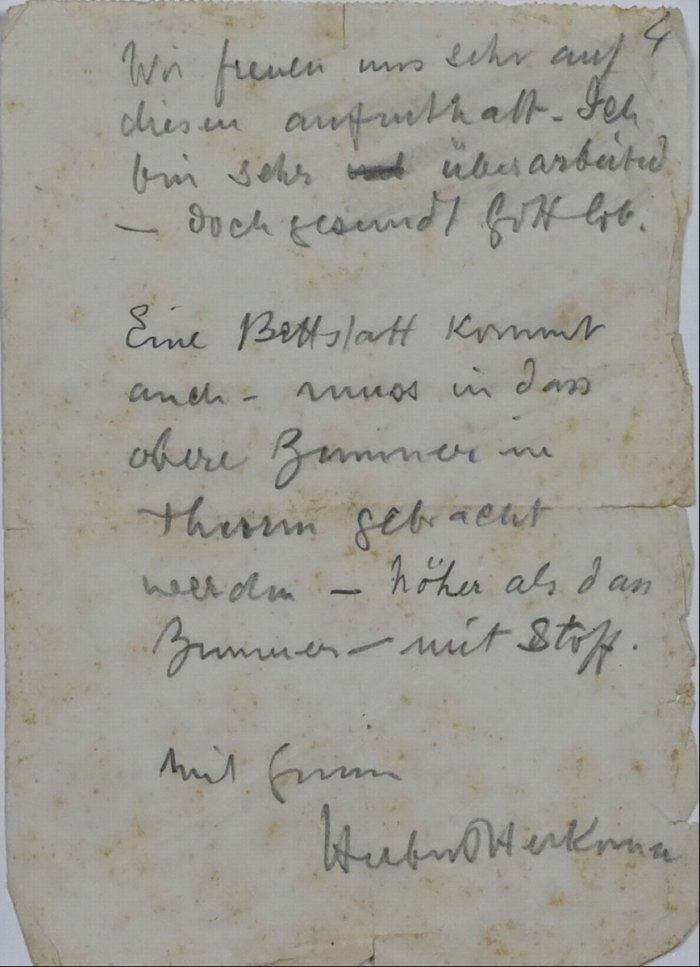 4
Wir freuen uns sehr auf
diesen aufenthalt - Ich
bin sehr überarbeitet
— doch gesundt Gott lob.
Eine Bettstatt kommt
auch - muss in dass
obere Zimmer in
Thurm gebracht
werden — höher als dass
Zimmer — mit Stoff.
Mit Gruss
Hubert Herkomer